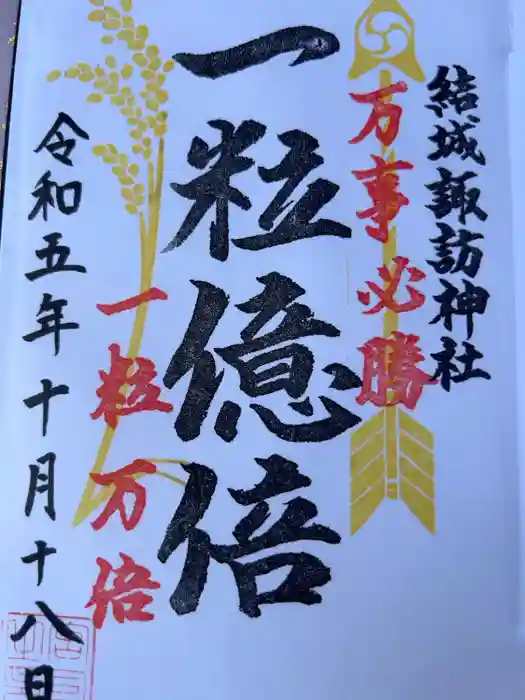 結城諏訪神社
万事必勝
一粒億倍
一粒万倍
令和五年十月十八日